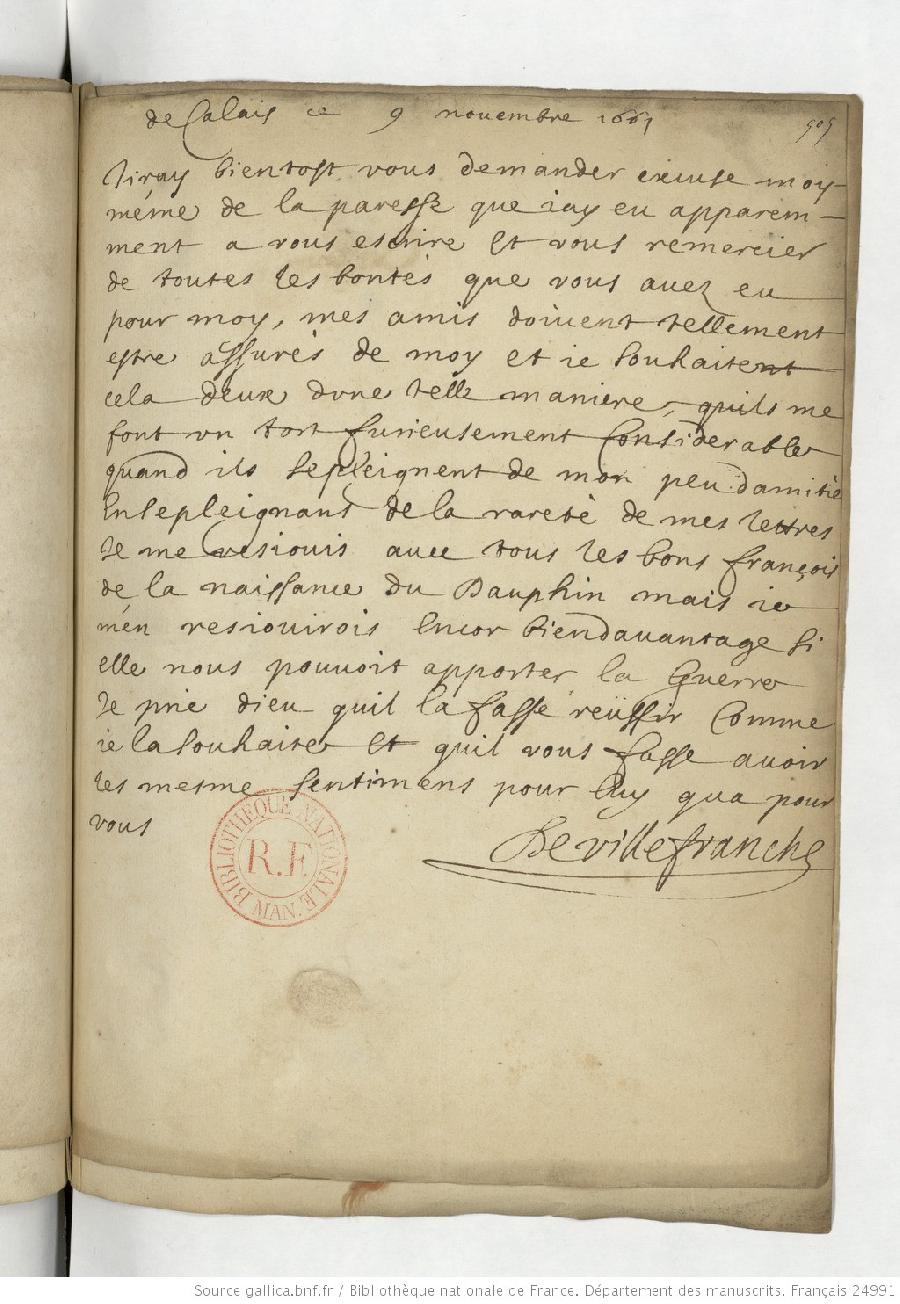 de Calais ce 9 novembre 1661
505
Jiray bientost vous demander excuse moy-
méme de la paresse que iay eu apparem-
ment a vous escrire Et vous remercier
de toutes les bontés que vous auez eu
pour moy, mes amis doiuent tellement
estre assurés de moy et ie souhaitent
cela deux dune telle maniere, quils me
font vn tort furieusement Considerable
quand ils sepleignent de mon peu damitié
En sepleignans de la rareté de mes lettres
Je me resiouis auec tous les bons françois
de la naissance du Dauphin mais ie
mén resiouirois Encor bien dauantage si
elle nous pouvoit apporter la Guerre
Je prie dieu quil la fasse reüssir Comme
ie la souhaite Et quil vous fasse avoir
les mesme sentimens pour luy qua pour
vous
De villefranche
BIBLIOTHÈQUE NATIONALE
R.F.
MAN.
Source gallica.bnf.fr / Bibliothèque nationale de France. Département des manuscrits. Français 24991